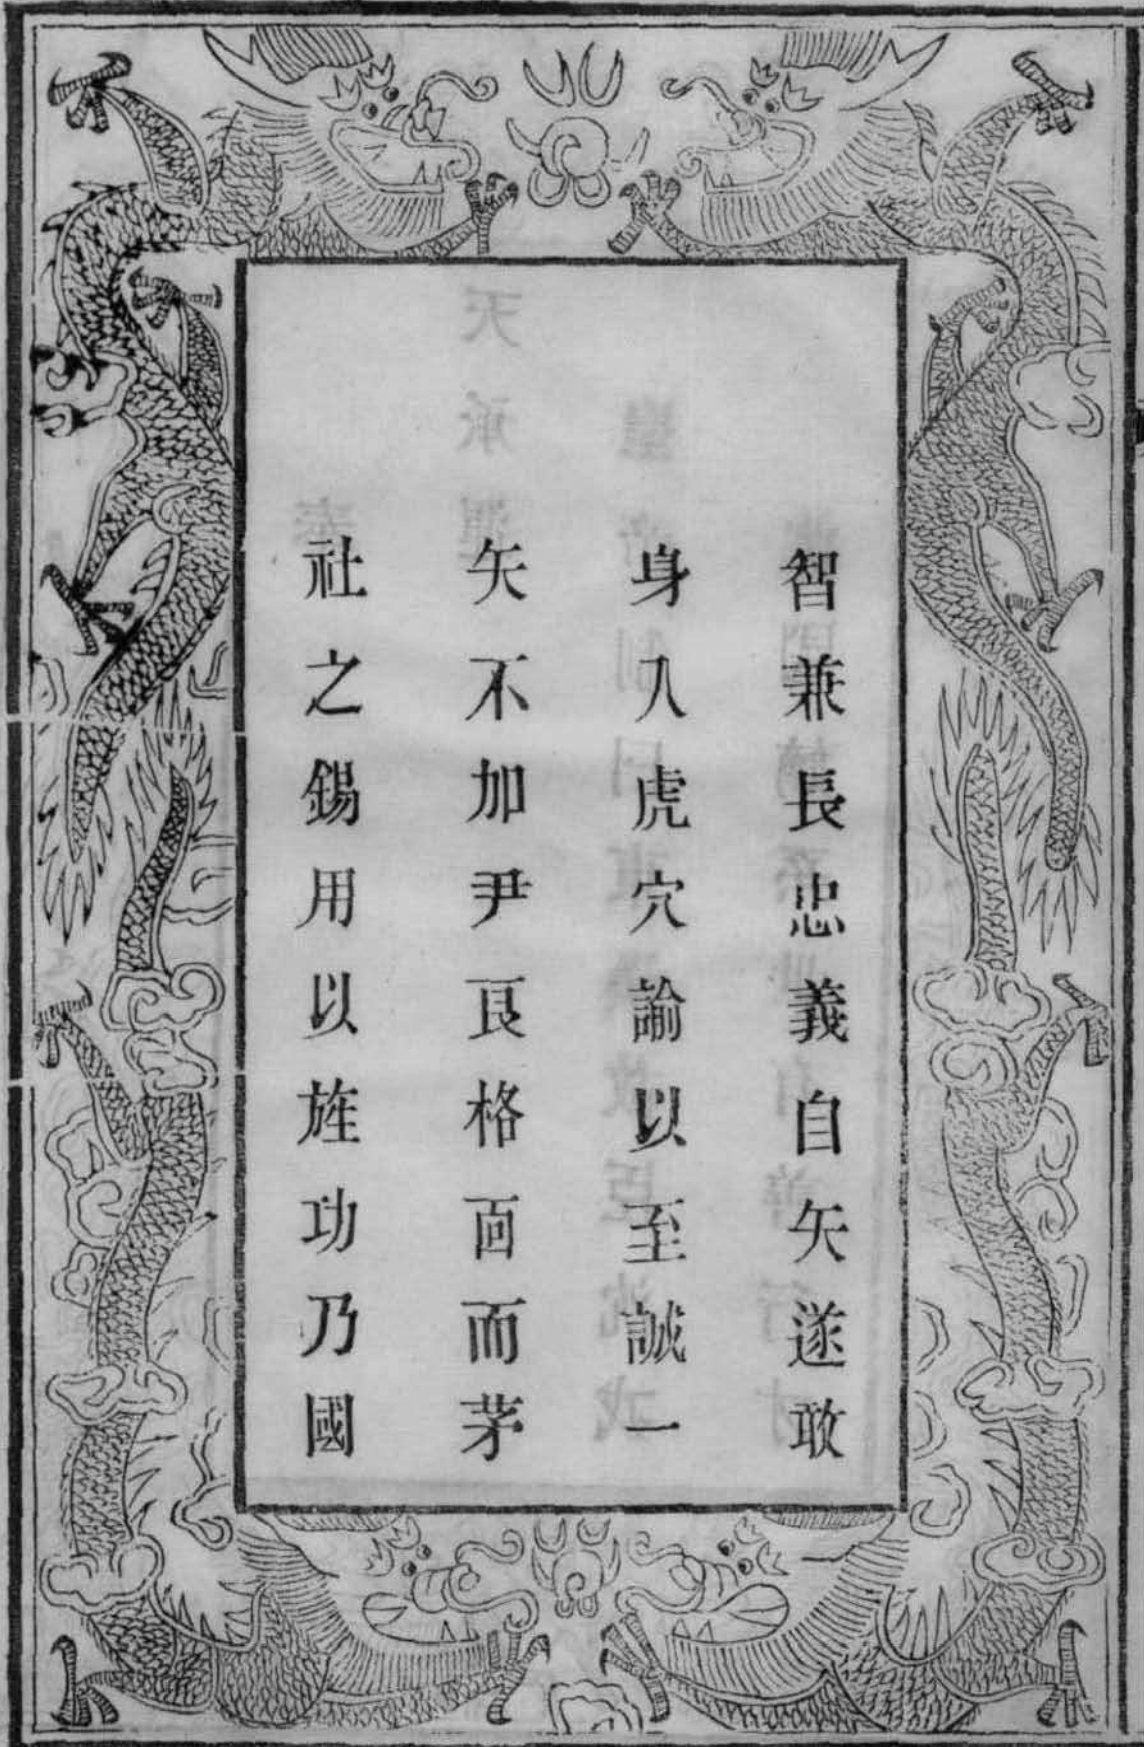 智兼長忠義自矢遂敢
身入虎穴諭以至誠一
矢不加尹良格面而茅
社之錫用以旌功乃國